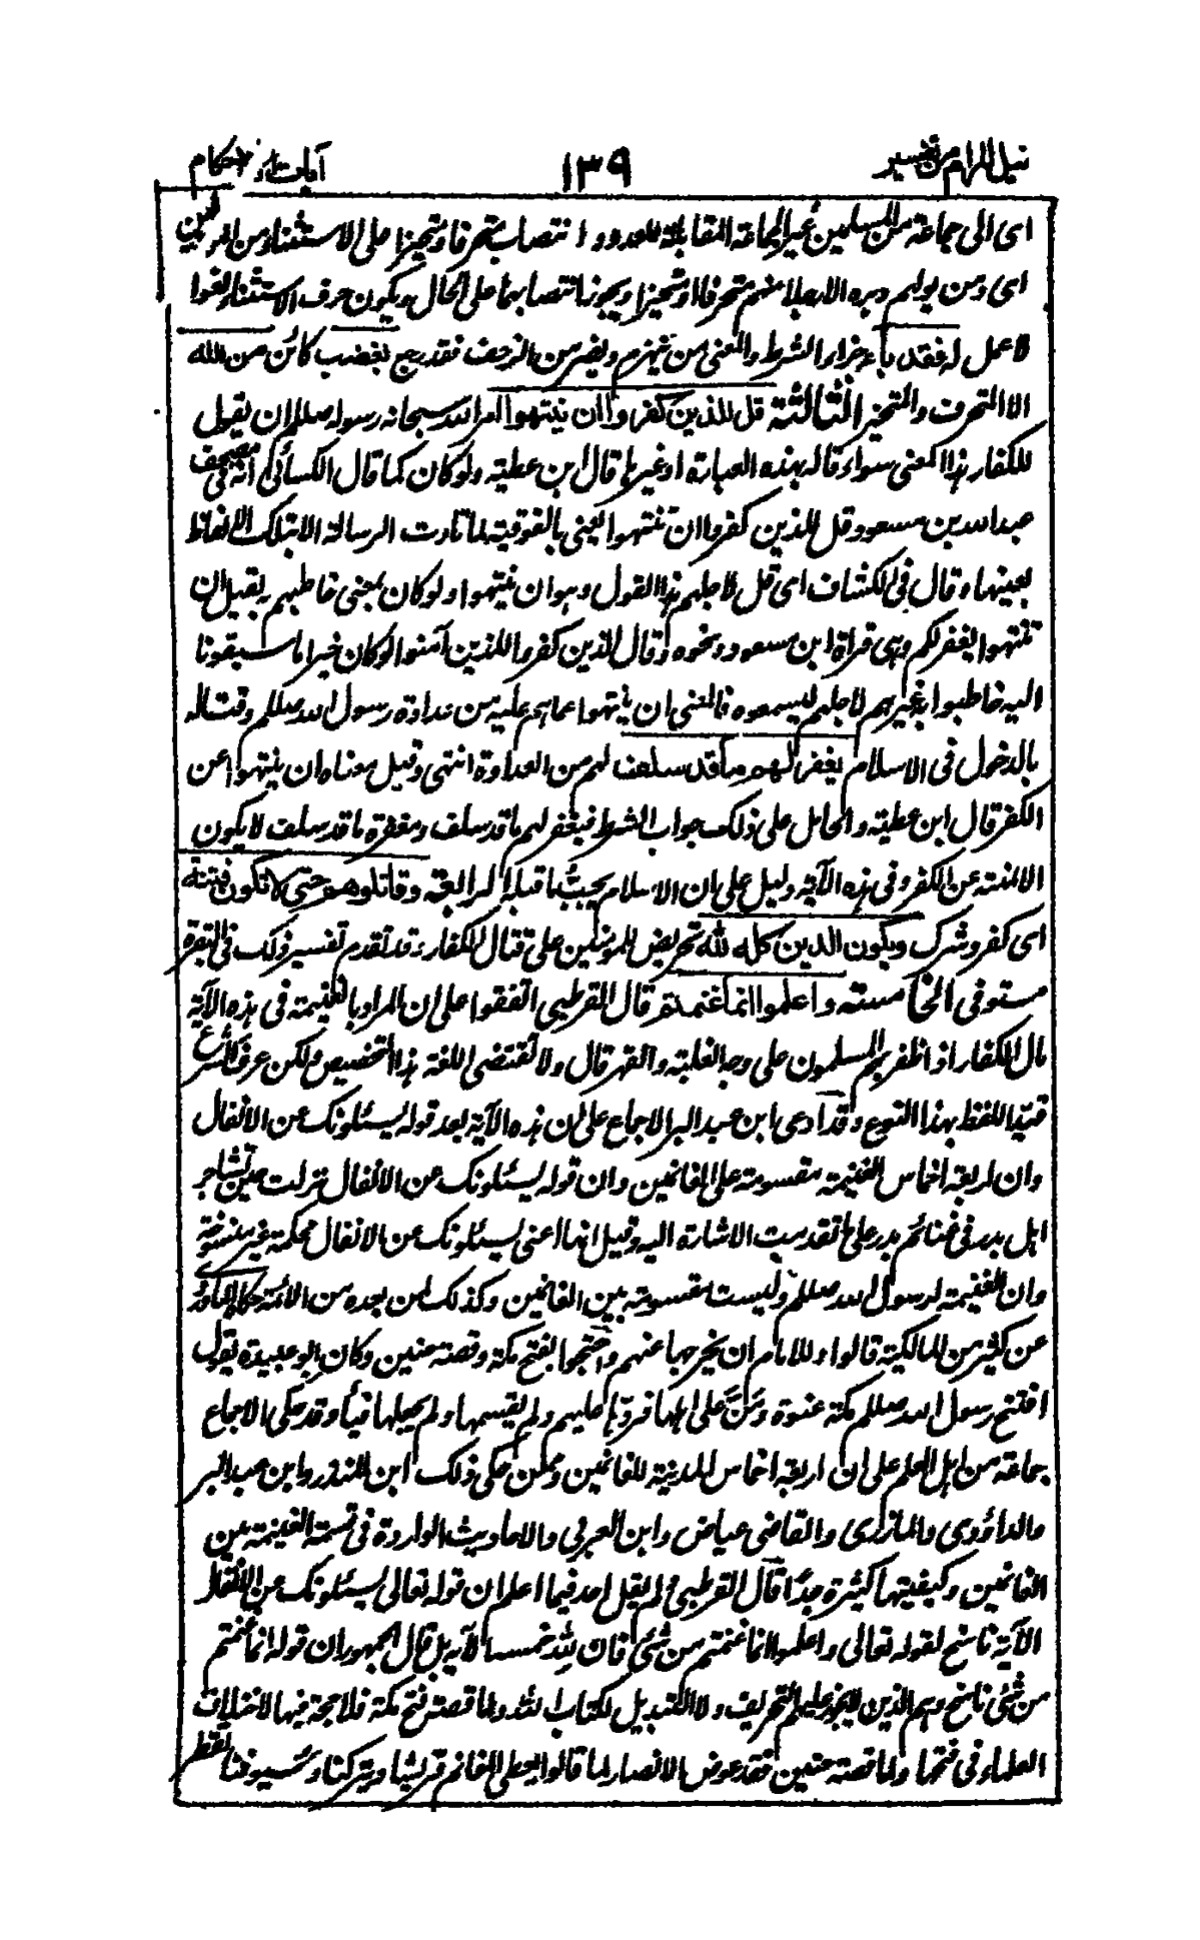 نيل المرام من تفسير ١٣٩ آيات الاحكام
اى الى جماعة من المسلمين غير الجماعة المقابلة للعدو و انتصاب متحرفا و متحيزا على الاستثناء من المولين
اى ومن يولهم دبره الا رجلا منهم متحرفا او متحيزا ويجوز انتصابهما على الحال ويكون حرف الاستثناء لغوا
لا عمل له فقد باء جزاء الشرط والمعنى من ينهزم ويفر من الزحف فقد رجع بغضب كائن من الله
الا المتحرف والمتحيز الثالثة قل للذين كفروا ان ينتهوا امر الله سبحانه رسوله صللم ان يقول
للكفار هذا المعنى سواء قاله بهذه العبارة او غيرها قال ابن عطية ولو كان كما قال الكسائى انه فى مصحف
عبد الله بن مسعود قل للذين كفروا ان تنتهوا يعنى بالفوقية لما تادت الرسالة الا بتلك الالفاظ
بعينها وقال فى الكشاف اى قل لاجلهم هذا القول وهو ان ينتهوا ولو كان بمعنى خاطبهم به لقيل ان
تنتهوا يغفر لكم وهى قراة ابن مسعود ونحوه وقال الذين كفروا للذين آمنوا لو كان خيرا ما سبقونا
اليه خاطبوا به غيرهم لاجلهم ليسمعوه فالمعنى ان ينتهوا عما هم عليه من عداوة رسول الله صللم وقتاله
بالدخول فى الاسلام يغفر لهم ما قد سلف لهم من العداوة انتهى وقيل معناه ان ينتهوا عن
الكفر قال ابن عطية والحامل على ذلك جواب الشرط فيغفر لهم ما قد سلف ومغفرة ما قد سلف لا يكون
الا لمنته عن الكفر وفى هذه الآية دليل على ان الاسلام يجبّ ما قبله الرابعة وقاتلوهم حتى لا تكون فتنة
اى كفر و شرك ويكون الدين كله لله تحريض للمؤمنين على قتال الكفار وقد تقدم تفسير ذلك فى البقرة
مستوفى الخامسة واعلموا انما غنمتم قال القرطبى اتفقوا على ان المراد بالغنيمة فى هذه الآية
مال الكفار اذا ظفر بهم المسلمون على وجه الغلبة والقهر قال ولا تقتضى اللغة هذا التخصيص ولكن عرف الشرع
قيّد اللفظ بهذا النوع وقد ادعى ابن عبد البر الاجماع على ان هذه الآية بعد قوله يسئلونك عن الانفال
وان اربعة اخماس الغنيمة مقسومة على الغانمين وان قوله يسئلونك عن الانفال نزلت حين تشاجر
اهل بدر فى غنائم بدر على ما تقدمت الاشارة اليه وقيل انها اعنى يسئلونك عن الانفال محكمة غير منسوخة
وان الغنيمة لرسول الله صللم وليست مقسومة بين الغانمين وكذلك لمن بعده من الائمة حكاه الماوردى
عن كثير من المالكية قالوا وللامام ان يخرجها عنهم واحتجوا بفتح مكة وقصة حنين وكان ابو عبيدة يقول
افتتح رسول الله صللم مكة عنوة ومَنَّ على اهلها فردّها عليهم ولم يقسمها ولم يجعلها فيأ وقد حكى الاجماع
جماعة من اهل العلم على ان اربعة اخماس الغنيمة للغانمين وممن حكى ذلك ابن المنذر وابن عبد البر
والداؤدى والمازرى والقاضى عياض وابن العربى والاحاديث الواردة فى قسمة الغنيمة بين
الغانمين وكيفيتها كثيرة جدًا قال القرطبى ولم يقل احد فيما اعلم ان قوله تعالى يسئلونك عن الانفال
الآية ناسخ لقوله تعالى واعلموا انما غنمتم من شئ فان لله خمسه الآية بل قال الجمهور ان قوله انما غنمتم
من شئ ناسخ وهم الذين لا يجوز عليهم التحريف ولا التبديل لكتاب الله واما قصة فتح مكة فلا حجة فيها لاختلاف
العلماء فى فتحها واما قصة حنين فقد عوض الانصار لما قالوا يعطى الغنائم قريشا ويتركنا وسيوفنا تقطر